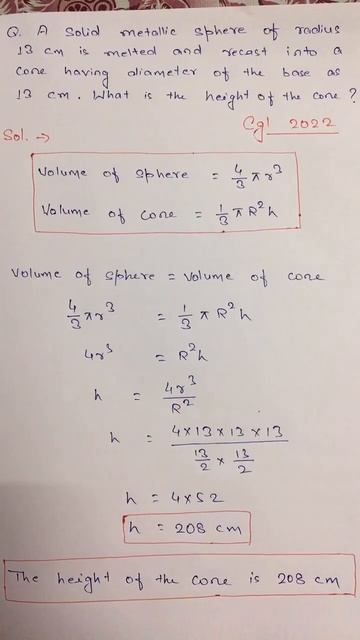 Q. A Solid metallic sphere of radius
13 cm is melted and recast into a
cone having diameter of the base as
13 cm. What is the height of the cone ?
Cgl 2022
Sol. →
Volume of sphere = 4/3 πr³
Volume of cone = 1/3 πR²h
Volume of sphere = Volume of cone
4/3 πr³ = 1/3 πR²h
4r³ = R²h
h = 4r³/R²
h = (4×13×13×13)/(13/2 × 13/2)
h = 4×52
h = 208 cm
The height of the cone is 208 cm